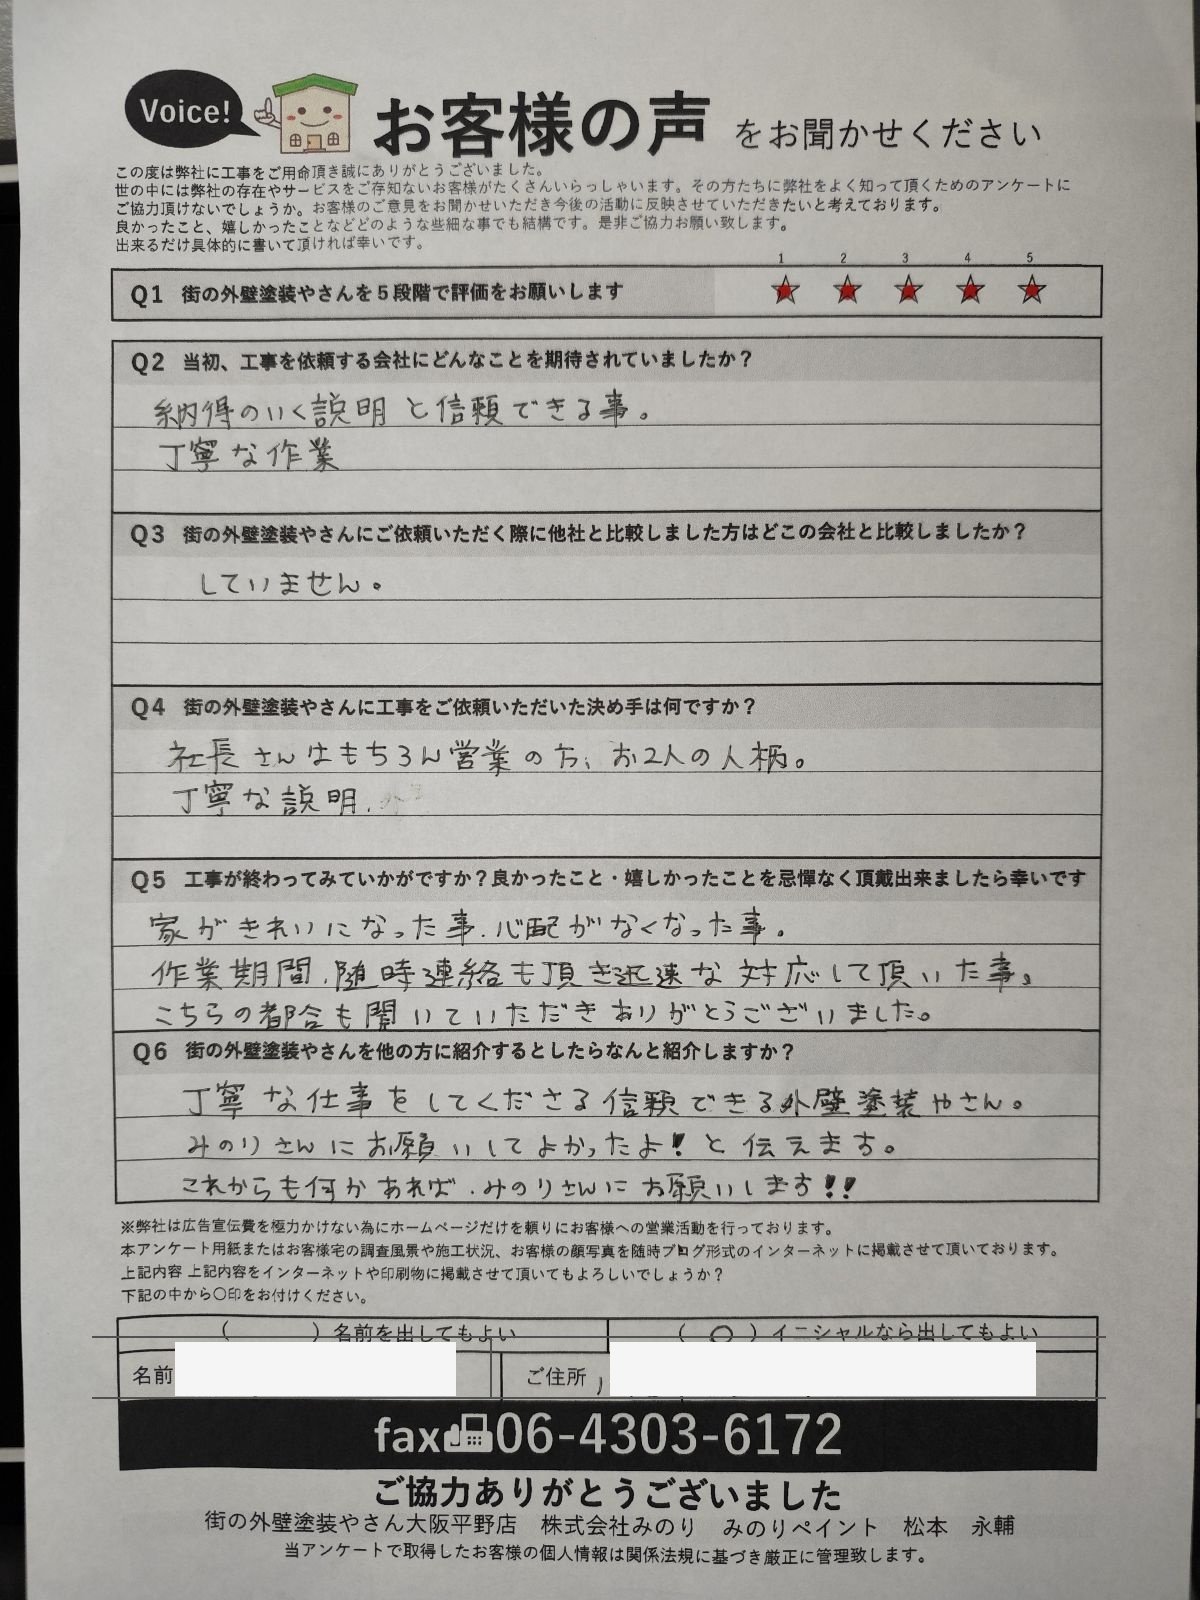 Voice!
お客様の声 をお聞かせください
この度は弊社に工事をご用命頂き誠にありがとうございました。
世の中には弊社の存在やサービスをご存知ないお客様がたくさんいらっしゃいます。その方たちに弊社をよく知って頂くためのアンケートに
ご協力頂けないでしょうか。お客様のご意見をお聞かせいただき今後の活動に反映させていただきたいと考えております。
良かったこと、嬉しかったことなどどのような些細な事でも結構です。是非ご協力お願い致します。
出来るだけ具体的に書いて頂ければ幸いです。
1 2 3 4 5
Q1 街の外壁塗装やさんを5段階で評価をお願いします ★ ★ ★ ★ ★
Q2 当初、工事を依頼する会社にどんなことを期待されていましたか？
納得のいく説明と信頼できる事。
丁寧な作業
Q3 街の外壁塗装やさんにご依頼いただく際に他社と比較しました方はどこの会社と比較しましたか？
していません。
Q4 街の外壁塗装やさんに工事をご依頼いただいた決め手は何ですか？
社長さんはもちろん営業の方、お2人の人柄。
丁寧な説明、
Q5 工事が終わってみていかがですか？良かったこと・嬉しかったことを忌憚なく頂戴出来ましたら幸いです
家がきれいになった事、心配がなくなった事。
作業期間、随時連絡も頂き迅速な対応して頂いた事。
こちらの都合も聞いていただきありがとうございました。
Q6 街の外壁塗装やさんを他の方に紹介するとしたらなんと紹介しますか？
丁寧な仕事をしてくださる信頼できる外壁塗装やさん。
みのりさんにお願いしてよかったよ！と伝えます。
これからも何かあれば、みのりさんにお願いします!!
※弊社は広告宣伝費を極力かけない為にホームページだけを頼りにお客様への営業活動を行っております。
本アンケート用紙またはお客様宅の調査風景や施工状況、お客様の顔写真を随時ブログ形式のインターネットに掲載させて頂いております。
上記内容 上記内容をインターネットや印刷物に掲載させて頂いてもよろしいでしょうか？
下記の中から〇印をお付けください。
（　　）名前を出してもよい （ 〇 ）イニシャルなら出してもよい
名前 ご住所
fax 06-4303-6172
ご協力ありがとうございました
街の外壁塗装やさん大阪平野店 株式会社みのり みのりペイント 松本 永輔
当アンケートで取得したお客様の個人情報は関係法規に基づき厳正に管理致します。